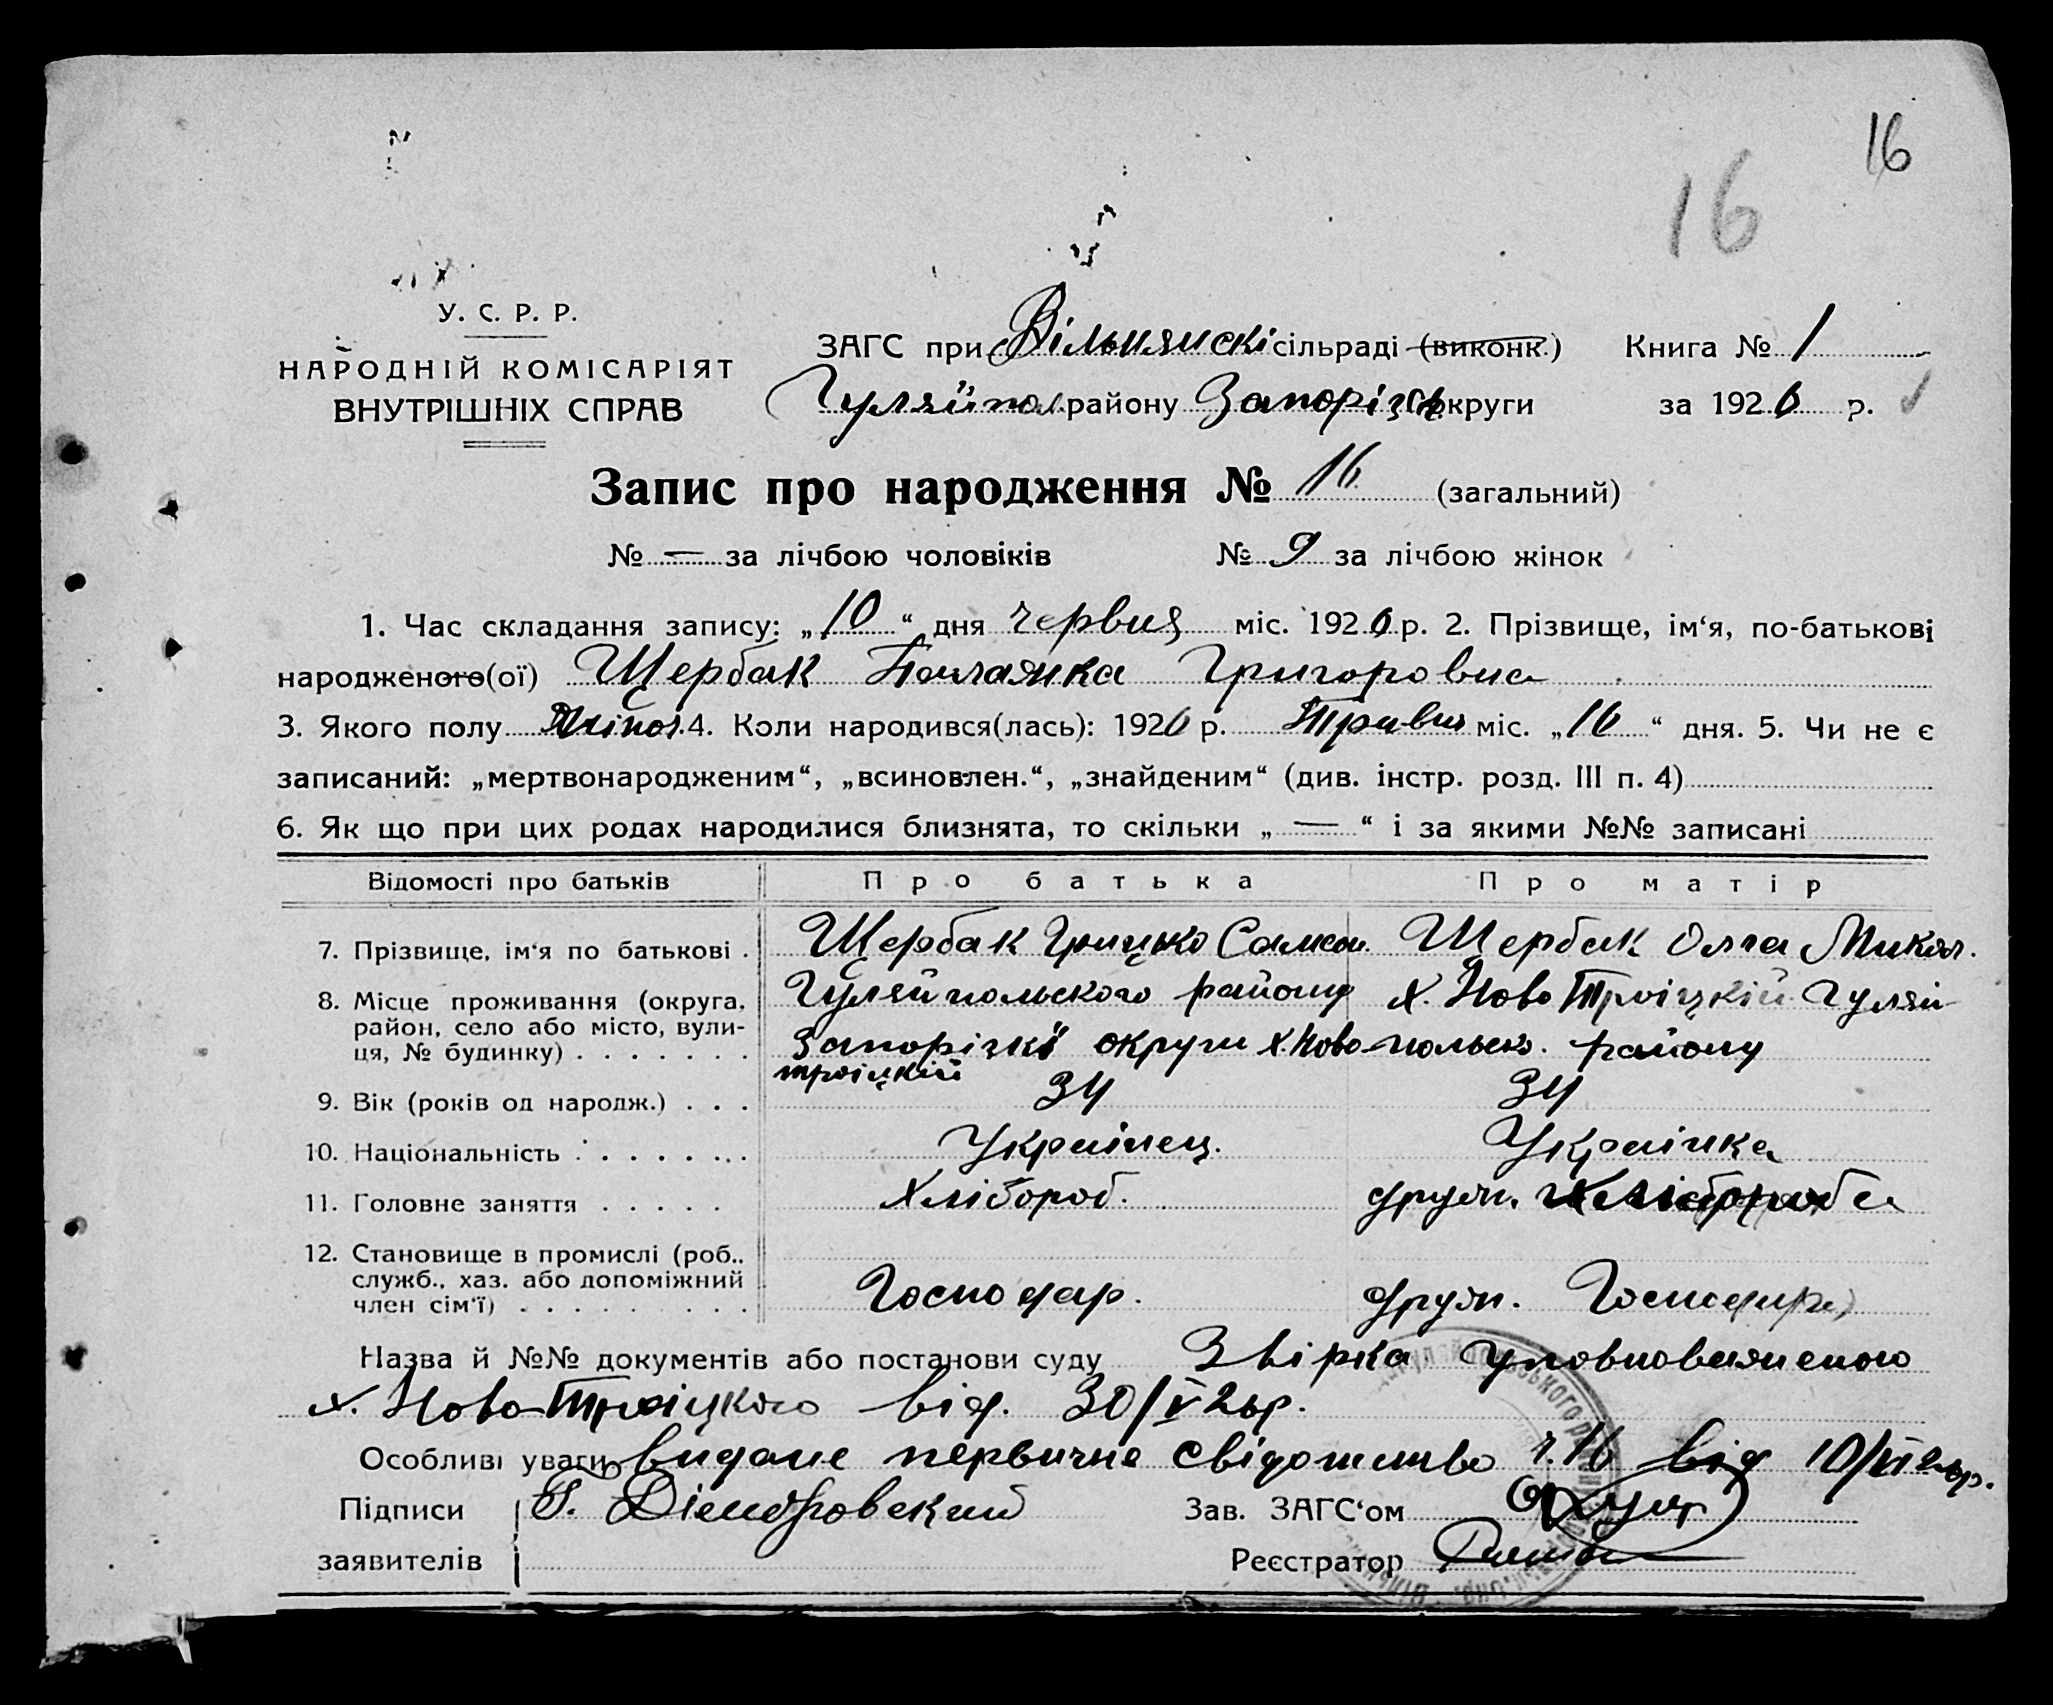 16
16
У. С. Р. Р.
НАРОДНІЙ КОМІСАРІЯТ
ВНУТРІШНІХ СПРАВ
ЗАГС при Вільнянскі сільраді (виконк.) Книга № 1
Гуляйпол. району Запорізь округи за 1926 р.
Запис про народження № 16 (загальний)
№ — за лічбою чоловіків № 9 за лічбою жінок
1. Час складання запису: „10“ дня червня міс. 1926 р. 2. Прізвище, ім‘я, по-батькові
народженого(ої) Щербак Григоровна
3. Якого полу Жіноч. 4. Коли народився(лась): 1926 р. Травня міс. „16“ дня. 5. Чи не є
записаний: „мертвонародженим“, „всиновлен.“, „знайденим“ (див. інстр. розд. III п. 4)
6. Як що при цих родах народилися близнята, то скільки „—“ і за якими №№ записані
Відомості про батьків Про батька Про матір
7. Прізвище, ім‘я по батькові . Щербак Грицько Самсон. Щербак Олга Микол.
8. Місце проживання (округа, Гуляйпольского району х. Ново Троіцкій Гуляй
район, село або місто, вули-
ця, № будинку) . . . . . . . Запорізкі округи х. Ново польск. району
троіцкій
9. Вік (років од народж.) . . . 34 34
10. Національність . . . . . . . Украінец. Украінка
11. Головне заняття . . . . . Хлібороб. друж. хлібороба
12. Становище в промислі (роб.,
служб., хаз. або допоміжний
член сім‘ї) . . . . . . . . . Господар. друж. Господаря
Назва й №№ документів або постанови суду Звірка уповноваженого
х. Ново-Троіцкого від. 30/V 26р.
Особливі уваги видане первичне свідоцтво ч. 16 від 10/VI 26р.
Підписи Зав. ЗАГС‘ом
заявителів Реєстратор